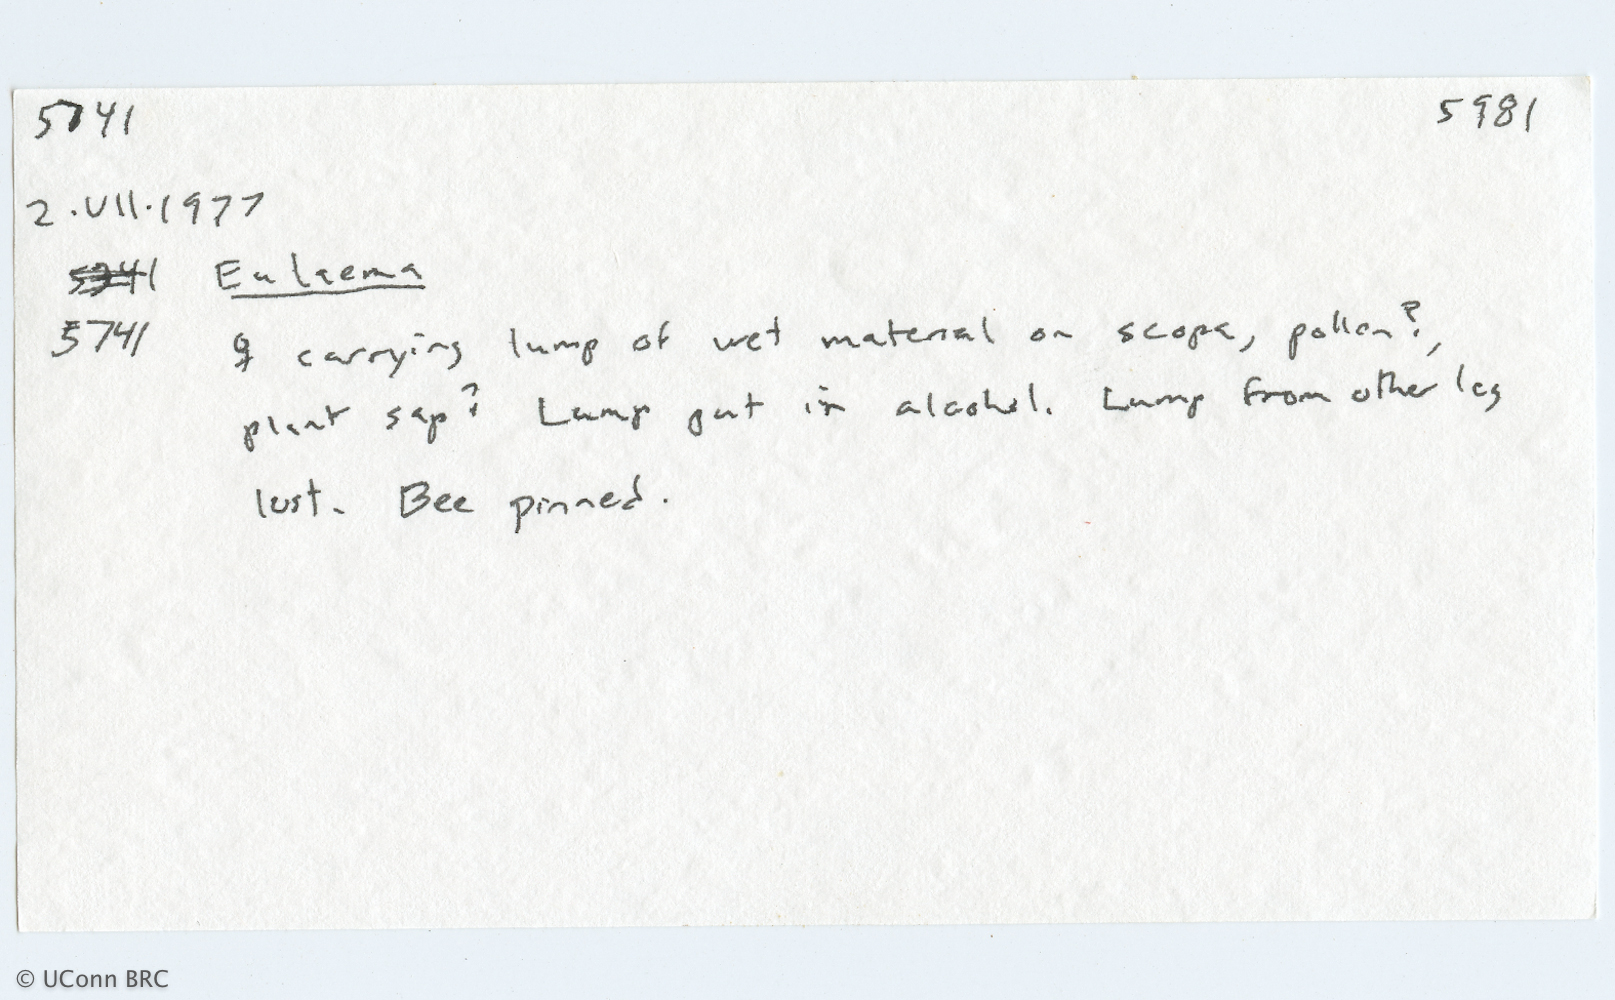 5741 5981
2.VII.1977
5741 Eulaema
5741 ♀ carrying lump of wet material on scopa, pollen?,
plant sap? Lump put in alcohol. Lump from other leg
lost. Bee pinned.
© UConn BRC